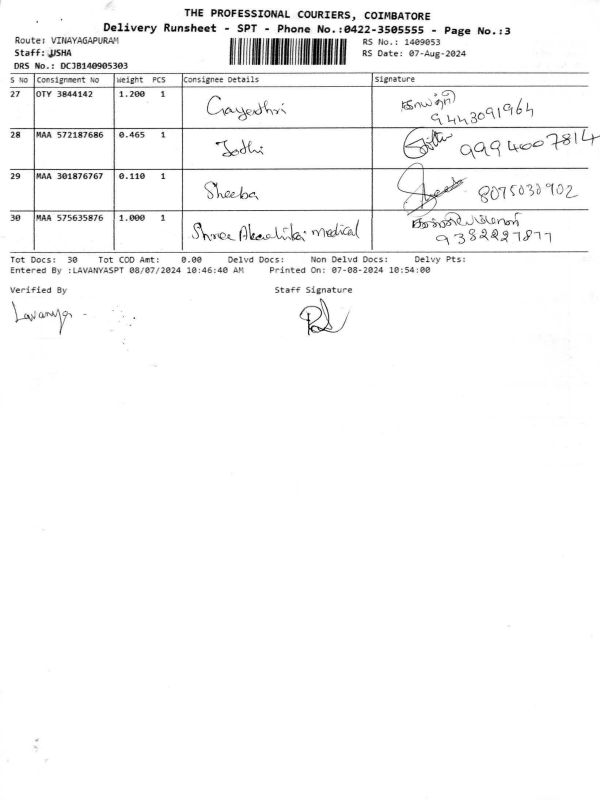 THE PROFESSIONAL COURIERS, COIMBATORE
Delivery Runsheet - SPT - Phone No.:0422-3505555 - Page No.:3
Route: VINAYAGAPURAM RS No.: 1409053
Staff: USHA RS Date: 07-Aug-2024
DRS No.: DCJB140905303
S No Consignment No Weight PCS Consignee Details Signature
27 OTY 3844142 1.200 1 Gayathri காயத்ரி
9443091964
28 MAA 572187686 0.465 1 Jothi 9994007814
29 MAA 301876767 0.110 1 Sheeba Sheeba 8075030902
30 MAA 575635876 1.000 1 Shree medical
9382227877
Tot Docs: 30 Tot COD Amt: 0.00 Delvd Docs: Non Delvd Docs: Delvy Pts:
Entered By :LAVANYASPT 08/07/2024 10:46:40 AM Printed On: 07-08-2024 10:54:00
Verified By Staff Signature
Lavanya -